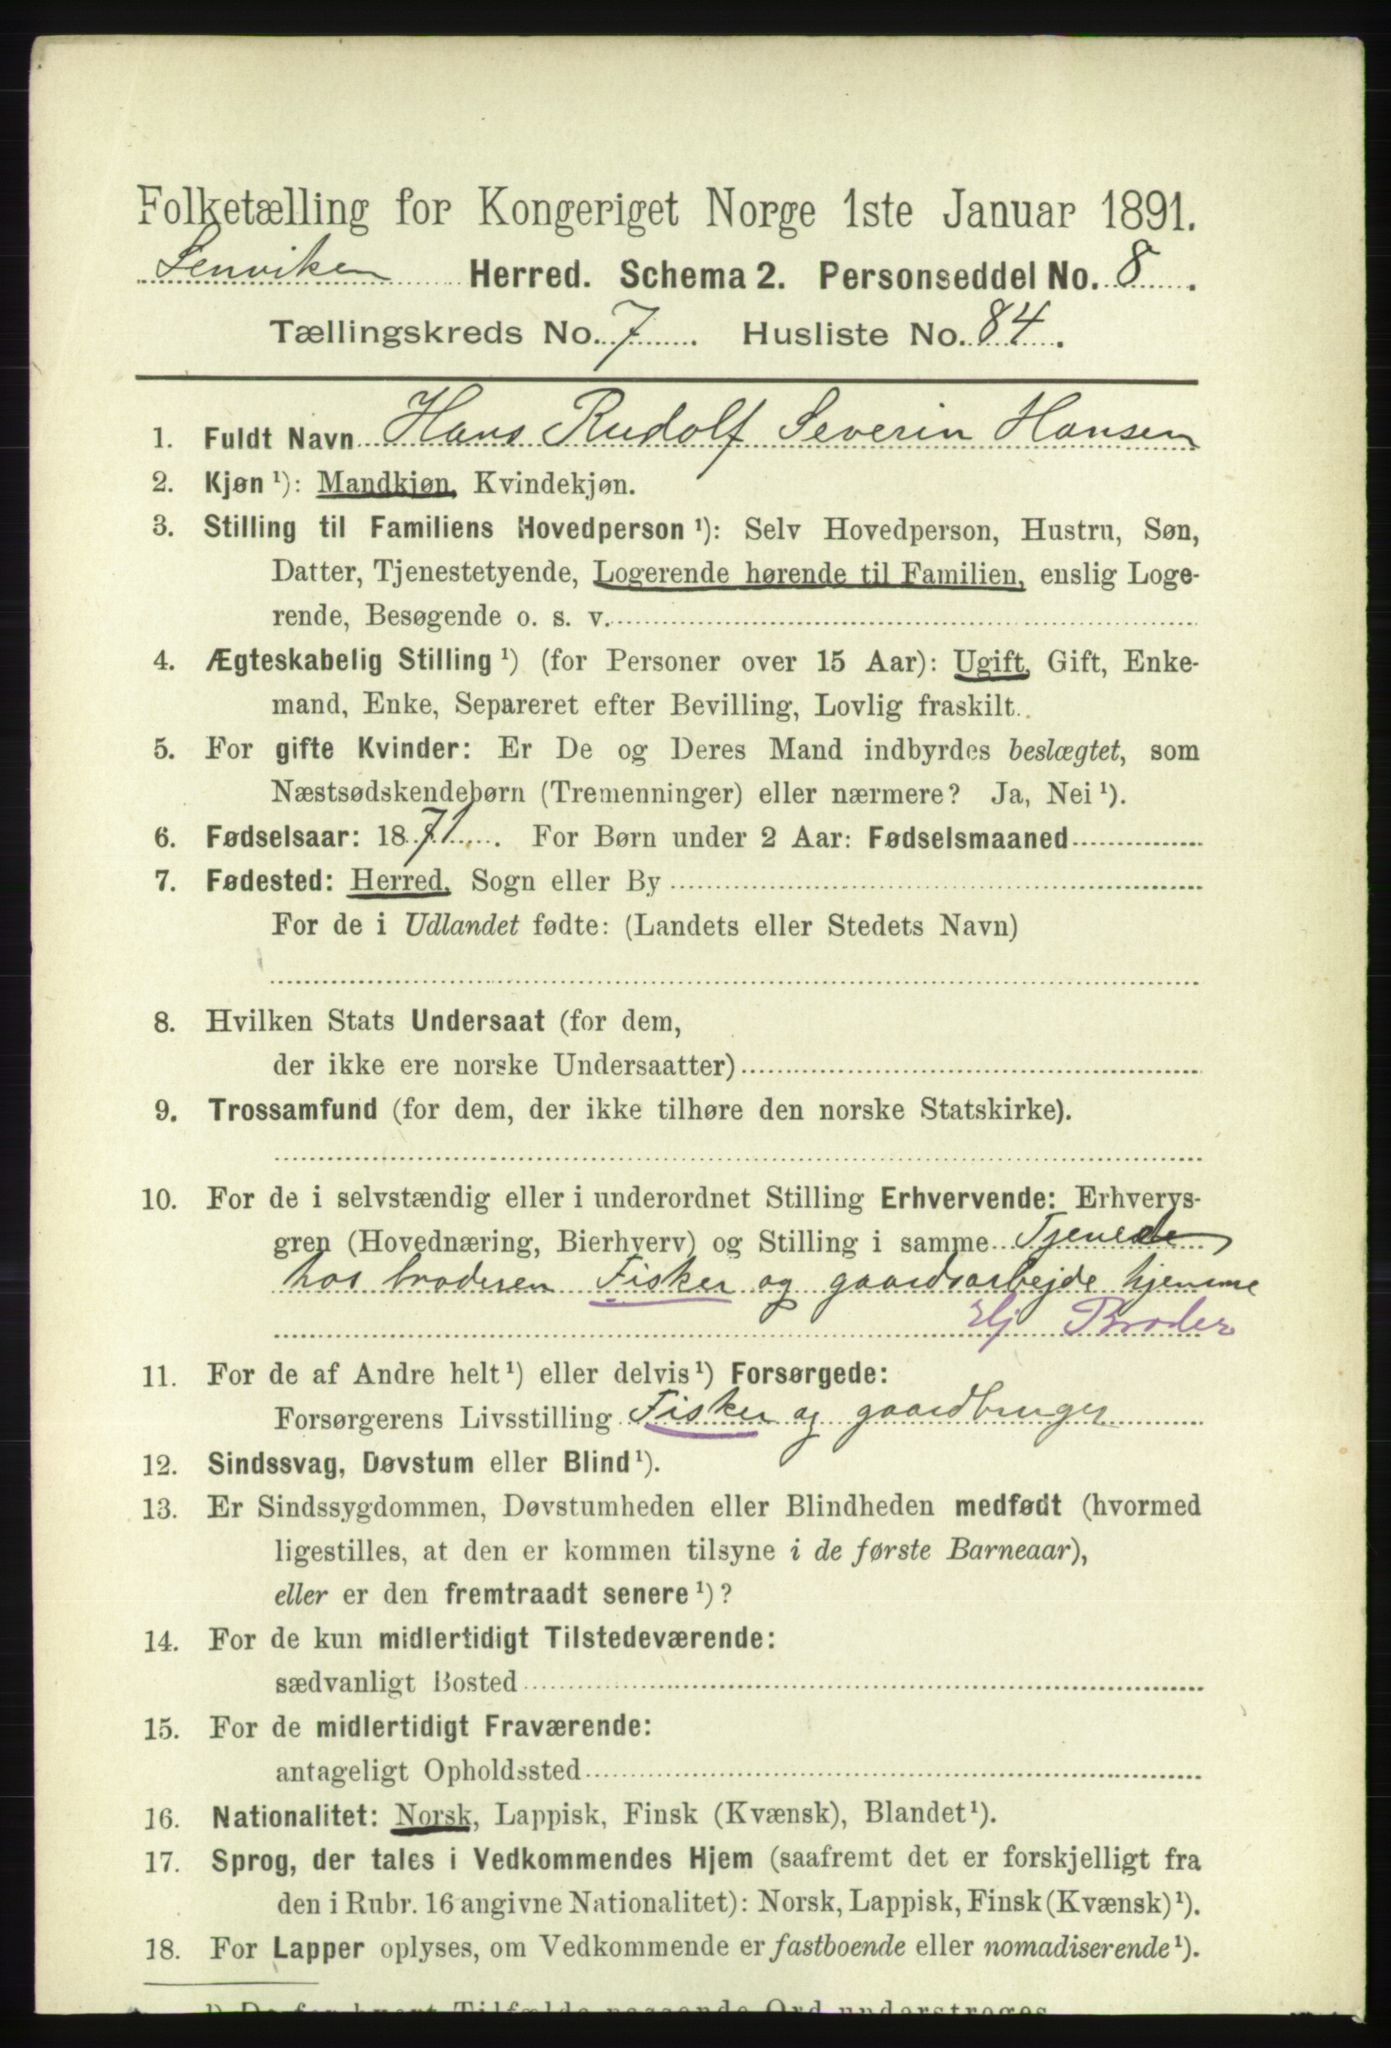 Folketælling for Kongeriget Norge 1ste Januar 1891.
Lenviken Herred. Schema 2. Personseddel No. 8.
Tællingskreds No. 7. Husliste No. 84.
1. Fuldt Navn Hans Rudolf Severin Hansen
2. Kjøn ¹): Mandkjøn, Kvindekjøn.
3. Stilling til Familiens Hovedperson ¹): Selv Hovedperson, Hustru, Søn,
Datter, Tjenestetyende, Logerende hørende til Familien, enslig Loge-
rende, Besøgende o. s. v.
4. Ægteskabelig Stilling ¹) (for Personer over 15 Aar): Ugift, Gift, Enke-
mand, Enke, Separeret efter Bevilling, Lovlig fraskilt.
5. For gifte Kvinder: Er De og Deres Mand indbyrdes beslægtet, som
Næstsødskendebørn (Tremenninger) eller nærmere? Ja, Nei ¹).
6. Fødselsaar: 1871. For Børn under 2 Aar: Fødselsmaaned
7. Fødested: Herred, Sogn eller By
For de i Udlandet fødte: (Landets eller Stedets Navn)
8. Hvilken Stats Undersaat (for dem,
der ikke ere norske Undersaatter)
9. Trossamfund (for dem, der ikke tilhøre den norske Statskirke).
10. For de i selvstændig eller i underordnet Stilling Erhvervende: Erhvervs-
gren (Hovednæring, Bierhverv) og Stilling i samme
hos broderen Fisker og gaardsarbejde hjemme
Broder
11. For de af Andre helt ¹) eller delvis ¹) Forsørgede:
Forsørgerens Livsstilling Fisker og gaardbruger
12. Sindssvag, Døvstum eller Blind ¹).
13. Er Sindssygdommen, Døvstumheden eller Blindheden medfødt (hvormed
ligestilles, at den er kommen tilsyne i de første Barneaar),
eller er den fremtraadt senere ¹)?
14. For de kun midlertidigt Tilstedeværende:
sædvanligt Bosted
15. For de midlertidigt Fraværende:
antageligt Opholdssted
16. Nationalitet: Norsk, Lappisk, Finsk (Kvænsk), Blandet ¹).
17. Sprog, der tales i Vedkommendes Hjem (saafremt det er forskjelligt fra
den i Rubr. 16 angivne Nationalitet): Norsk, Lappisk, Finsk (Kvænsk) ¹).
18. For Lapper oplyses, om Vedkommende er fastboende eller nomadiserende ¹).
¹) De for hvert Tilfælde passende Ord understreges.